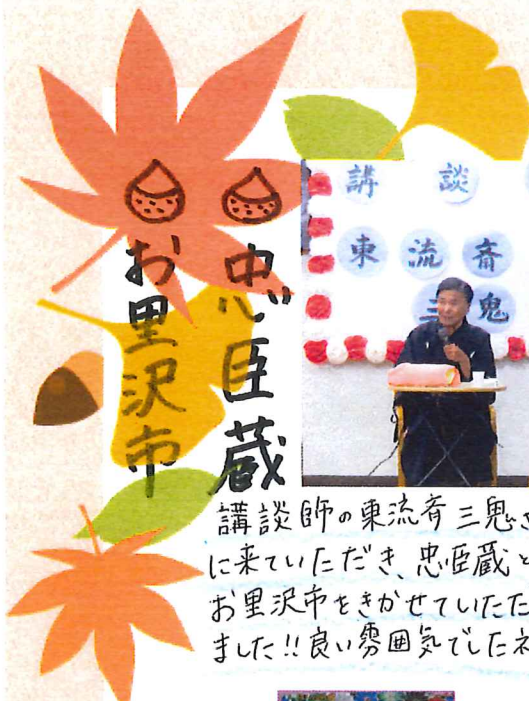 忠臣蔵
お里沢市
講 談
東 流 斎
三 鬼
講談師の東流斉三鬼さ
に来ていただき、忠臣蔵と
お里沢市をきかせていただ
ました!!良い雰囲気でしたネ